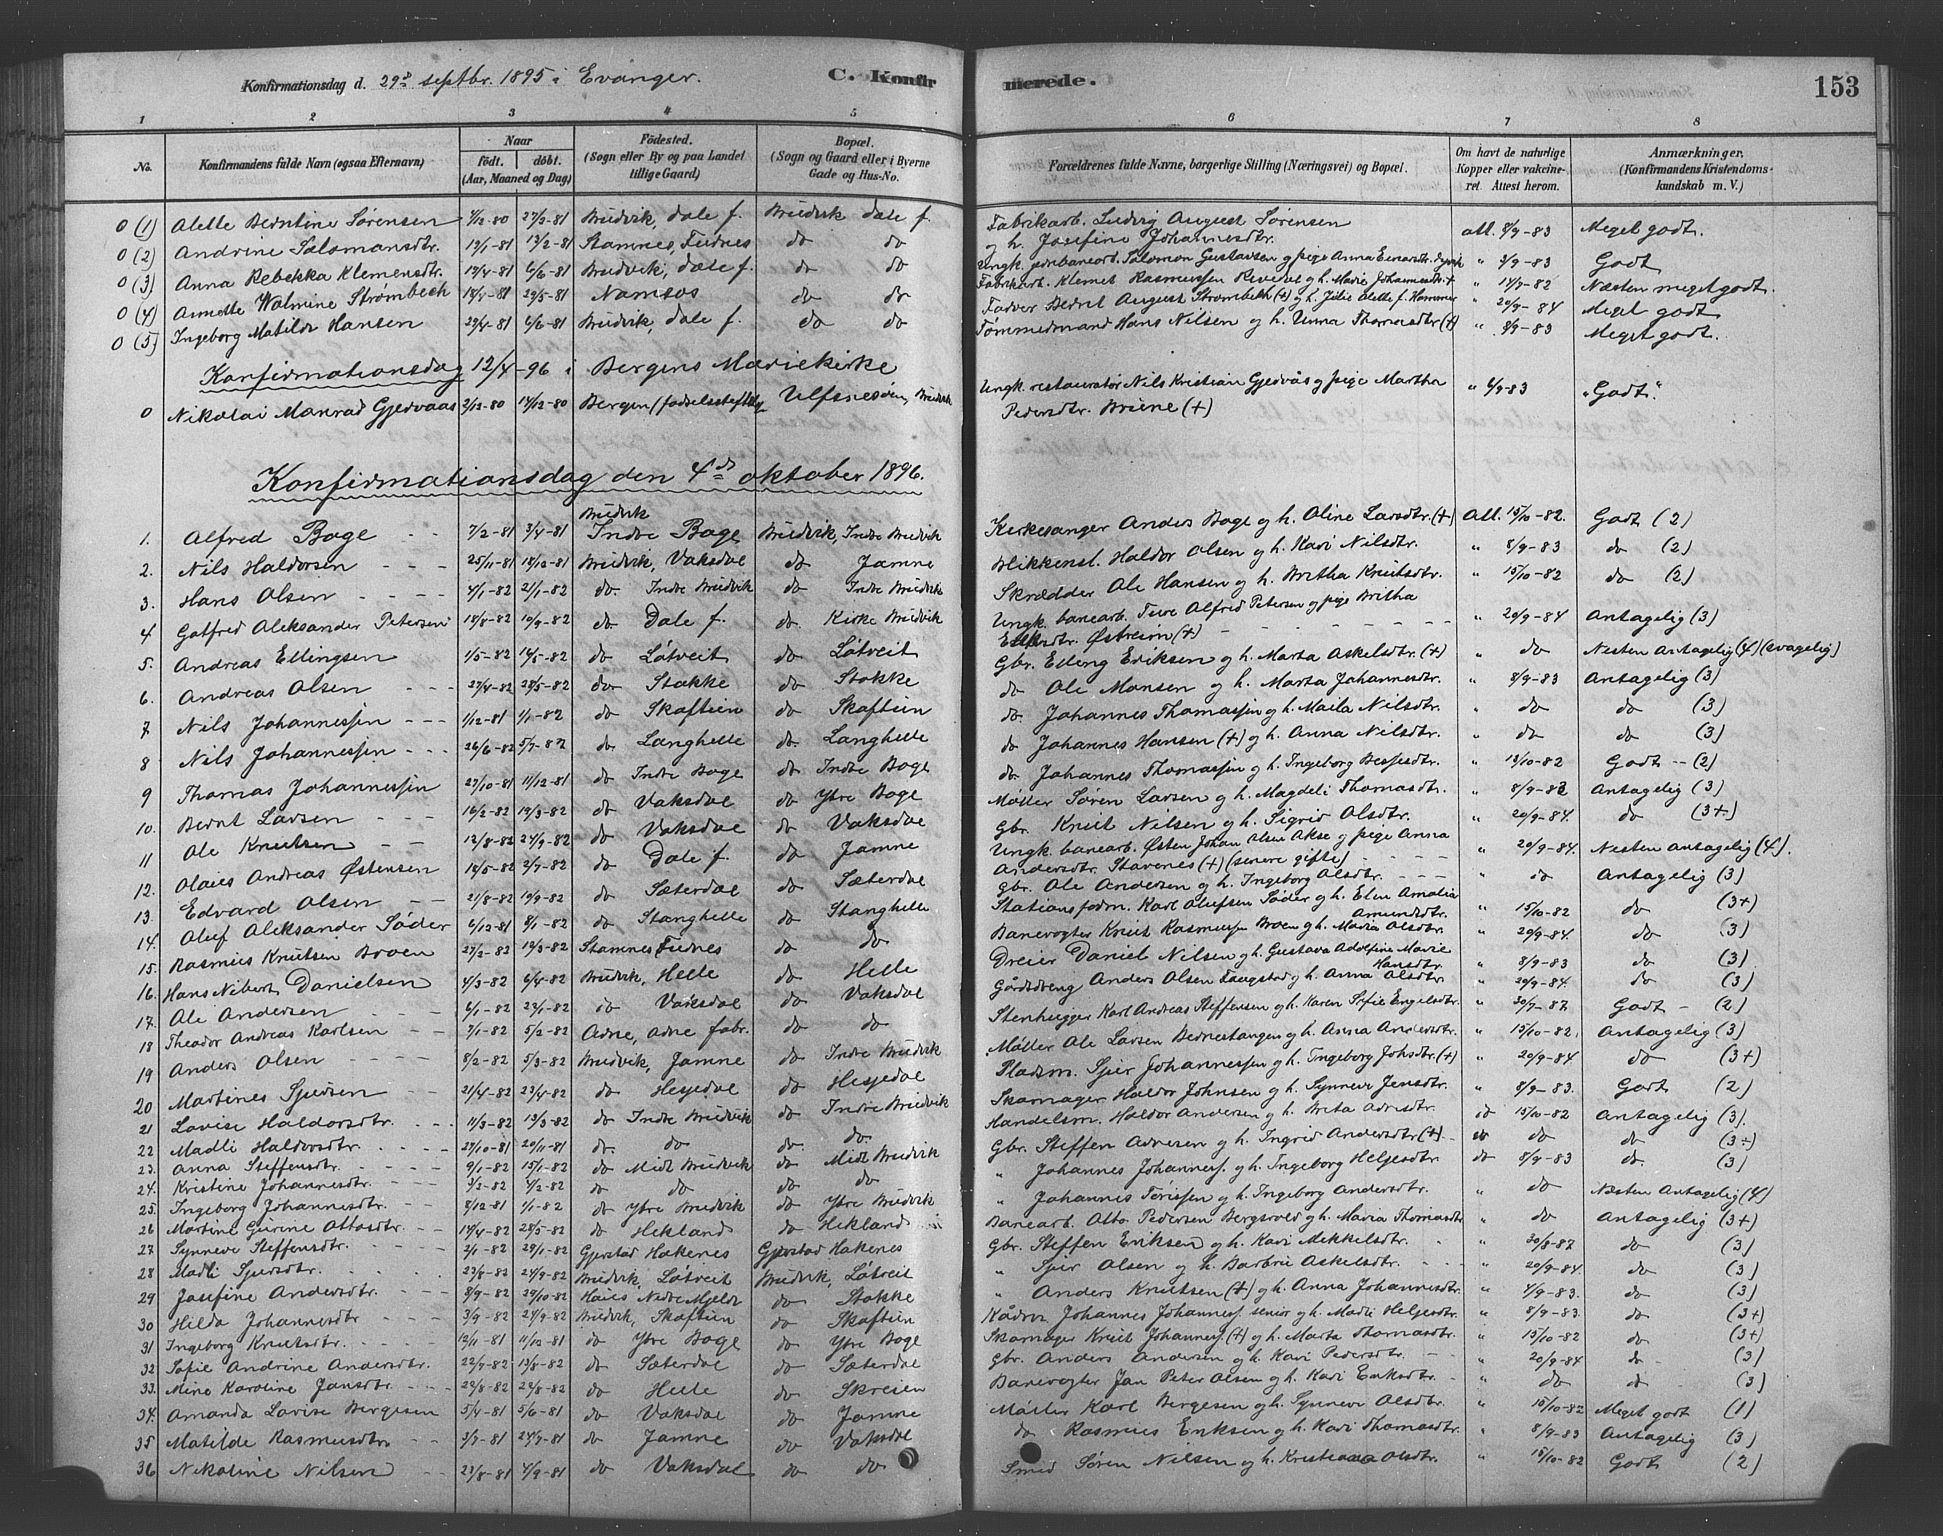 Konfirmationsdag d. 29de septbr. 1895 i Evanger. C. Konfirmerede. 153
1 2 3 4 5 6 7 8
No. Konfirmandens fulde Navn (ogsaa Efternavn) Naar födt. döbt. (Aar, Maaned og Dag) Födested. (Sogn eller By og paa Landet tillige Gaard) Bopæl. (Sogn og Gaard eller i Byerne Gade og Hus-No. Forældrenes fulde Navne, borgerlige Stilling (Næringsvei) og Bopæl. Om havt de naturlige Kopper eller vakcineret. Attest herom. Anmærkninger. (Konfirmandens Kristendomskundskab m. V.)
0 (1) Alette Berntine Sørensen 7/12-80 27/3-81 Bruvik, Dale f. Bruvik Dale f. Fabrikarb. Ludvig August Sørensen og h. Josefine Johannesdtr. att. 8/9-83 Meget godt.
0 (2) Andrine Salomonsdtr. 19/1-81 13/2-81 Stamnes, Fudnes do do Ungk. jernbanearb. Salomon Gustavsen og pige Anna " 3/9-83 Godt
0 (3) Anna Rebekka Klemensdtr. 19/4-81 6/6-81 Bruvik, Dale f. do do Fabrikarb. Klemet Rasmussen og h. Marie Johannesdtr " 14/9-82 Næsten meget godt.
0 (4) Annette Walmine Strømbech 18/4-81 29/5-81 Namsos do do Farver Bernt August Strømbech (+) og h. Julie Alette f. Hammer " 20/9-84 Meget godt
0 (5) Ingeborg Matilde Hansen 29/4-81 6/6-81 Bruvik, Dale f. do do Tømmermand Hans Nilsen og h. Anna Thomasdtr (+) " 8/9-83 Meget godt.
Konfirmationsdag 12/4-96 i Bergens Mariekirke
0 Nikolai Monrad Gjervaas 2/12-80 14/12-80 Bergen, fødselsstiftelse Ulfsnesøen, Bruvik Ungk. restauratør Nils Kristian Gjervås og pige Martha Pedersdtr. Briene (+) " 6/9-83 "Godt."
Konfirmationsdag den 4de oktober 1896.
1. Alfred Boge 7/2-81 3/4-81 Bruvik Indre Boge Bruvik, Indre Bruvik Kirkesanger Anders Boge og h. Oline Larsdtr. (+) Att. 15/10-82. Godt (2)
2. Nils Haldorsen 25/11-81 18/12-81 Bruvik, Vaksdal do Jamne Blikkensl. Haldor Olsen og h. Kari Nilsdtr. " 8/9-83 do (2)
3. Hans Olsen 4/1-82 21/1-82 do Indre Bruvik do Indre Bruvik Skrædder Ole Hansen og h. Britha Knutsdtr. " 15/10-82 do (2)
4 Gotfred Aleksander Petersen 18/8-82 10/9-82 do Dale f. do Kirke Bruvik Ungk. banearb. Ture Alfred Petersen og pige Britha Østreim (+) " 20/9-84 Antagelig (3)
5. Andreas Ellingsen 1/5-82 14/5-82 do Løtveit do Løtveit Gbr. Elling Eriksen og h. Marta Askelsdtr. (+) " do Nesten Antagelig (4) (svagelig)
6. Andreas Olsen 27/4-82 28/5-82 do Stokke do Stokke do Ole Monsen og h. Marta Johannesdtr. " 8/9-83 Antagelig (3)
7 Nils Johannessen 1/12-81 1/1-82 do Skaftun do Skaftun do Johannes Thomassen og h. Maila Nilsdtr. " do do (3)
8 Nils Johannessen 26/6-82 5/7-82 do Langhelle do Langhelle do Johannes Hansen (+) og h. Anna Nilsdtr. " do do (3)
9 Thomas Johannessen 27/10-81 11/12-81 do Indre Boge do Indre Boge do Johannes Thomassen og h. Ingeborg Bessesdtr. " 13/10-82 Godt - (2)
10. Bernt Larsen 16/2-82 19/3-82 do Vaksdal do Ytre Boge Møller Søren Larsen og h. Magdeli Thomasdtr. " 8/9-82 Antagelig (3)
11 Ole Knutsen 12/8-82 24/9-82 do Vaksdal do Vaksdal Gbr. Knut Nilsen og h. Sigrid Olsdtr. " 20/9-84. do (3+)
12. Olaies Andreas Østensen 16/5-82 2/7-82 do Dale f. do Jamne Ungk. banearb. Østen Johan Olsen Akse og pige Anna Andersdtr. Stavenes (+) (senere gifte) " 20/9-84. Nesten Antagelig (4).
13. Edvard Olsen 21/8-82 19/9-82 do Sæterdal do Sæterdal Gbr. Ole Andersen og h. Ingeborg Olsdtr. " do Antagelig (3)
14. Oluf Aleksander Søder 6/12-81 8/1-82 do Stanghelle do Stanghelle Stationsform. Karl Olufsen Søder og h. Elen Amalia Amundsdtr. " 15/10-82 do (3+)
15. Rasmus Knutsen Broen 27/2-82 19/3-82 Stamnes Fudnes do do Banevogter Knut Rasmussen Broen og h. Maria Olsdtr. " 20/9-84. do (3)
16. Hans Nibert Danielsen 4/3-82 6/4-82 Bruvik, Helle do Helle Dreier Daniel Nilsen og h. Gustava Adolfine Marie Hansdtr. " 8/9-83 do (3)
17. Ole Andersen 6/1-82 22/1-82 do Vaksdal do Vaksdal Gårdsdreng Anders Olsen og h. Anna Olsdtr " 20/9-84 do (3)
18 Theodor Andreas Karlsen 7/1-82 5/2-82 Arne, Arne fabr. do do Stenhugger Karl Andreas Steffensen og h. Karen Sofie Engelsdtr. " 30/7-87 Godt - (2)
19 Anders Olsen 8/2-82 5/3-82 Bruvik, Jamne do Indre Bruvik Møller Ole Larsen Bernestangen og h. Anna Andersdtr. " 15/10-82. Antagelig (3)
20 Martines Sjursen 21/4-82 23/4-82 do Hesjedal do Hesjedal Pladsm. Sjur Johannessen og h. Ingeborg Johsdtr. (+) " 20/9-84 do (3+)
21 Lovise Haldorsdtr. 11/3-82 13/3-82 do Indre Bruvik do Indre Bruvik Skomager Haldor Johnsen og h. Synneve Jensdtr. " 8/9-83. Godt (2)
22 Madli Haldorsdtr. 27/10-81 20/11-81 do do do do Handelsm. Haldor Andersen og h. Brita Arnesdtr. do 15/10-82 Antagelig (3)
23. Anna Steffensdtr. 9/1-82 15/1-82 do Midt Bruvik do Midt Bruvik Gbr. Steffen Arnesen og h. Ingrid Andersdtr (+) do do do (3+)
24. Kristine Johannesdtr. 3/2-82 4/2-82 do do do do " Johannes Johanness. og h. Ingeborg Helgesdtr. do 8/9-83 do (3)
25. Ingeborg Johannesdtr. 8/12-81 1/1-82 do Ytre Bruvik do Ytre Bruvik " Johannes Torissen og h. Ingeborg Andersdtr. " do Næsten Antagelig (4)
26 Martine Gurine Ottosdtr. 14/4-82 28/5-82 do Hekland do Hekland Banearb. Otto Pedersen og h. Maria Thomasdtr " do Antagelig (3+)
27 Synneve Steffensdtr. 2/1-82 29/1-82 Gjerstad Hakenes Gjerstad Hakenes Gbr. Steffen Eriksen og h. Kari Mikkelsdtr. " 30/8-87 do (3)
28 Madli Sjursdtr. 23/8-82 24/9-82 Bruvik, Løtveit Bruvik, Løtveit " Sjur Olsen og h. Barbru Askelsdtr. " 20/9-84. do (3)
29 Josefine Andersdtr. 8/9-82 29/10-82 Haus Nedre Mjelde do Stokke " Anders Knutsen (+) og h. Anna Johannesdtr. " 4/9-83. do (3)
30 Hilda Johannesdtr 3/9-82 24/9-82 Bruvik, Skaftun do Skaftun Kårm. Johannes Johanness. senior og h. Madli Helgesdtr. " 8/9-83. do (3+)
31 Ingeborg Knutsdtr. 12/11-81 11/12-81 do Ytre Boge do Ytre Boge Skomager Knut Johanness. (+) og h. Marta Thomasdtr. " 15/10-82 do (3+)
32 Sofie Andrine Andersdtr. 22/7-82 13/8-82 do Sæterdal do Sæterdal Gbr. Anders Andersen og h. Kari Pedersdtr. " 20/9-84 do (3)
33. Mine Karoline Jansdtr. 22/8-82 28/8-82 do Helle do Skreien Banevogter Jan Peter Olsen og h. Kari Eriksdtr. " do do (3)
34. Amanda Lovise Bergesen 5/4-81 5/6-81 do Vaksdal do Jamne Møller Karl Bergesen og h. Synneve Olsdtr. " 15/10-82 Meget godt (1)
35 Matilde Rasmusdtr 3/7-81 24/7-81 do Jamne do Vaksdal do Rasmus Eriksen og h. Kari Thomasdtr. " 8/9-83 Antagelig (3)
36 Nikoline Nilsen 23/8-81 4/9-81 do Vaksdal do do Smed Søren Nilsen og h. Kristiana Olsdtr. " 15/10-82 Godt (2)